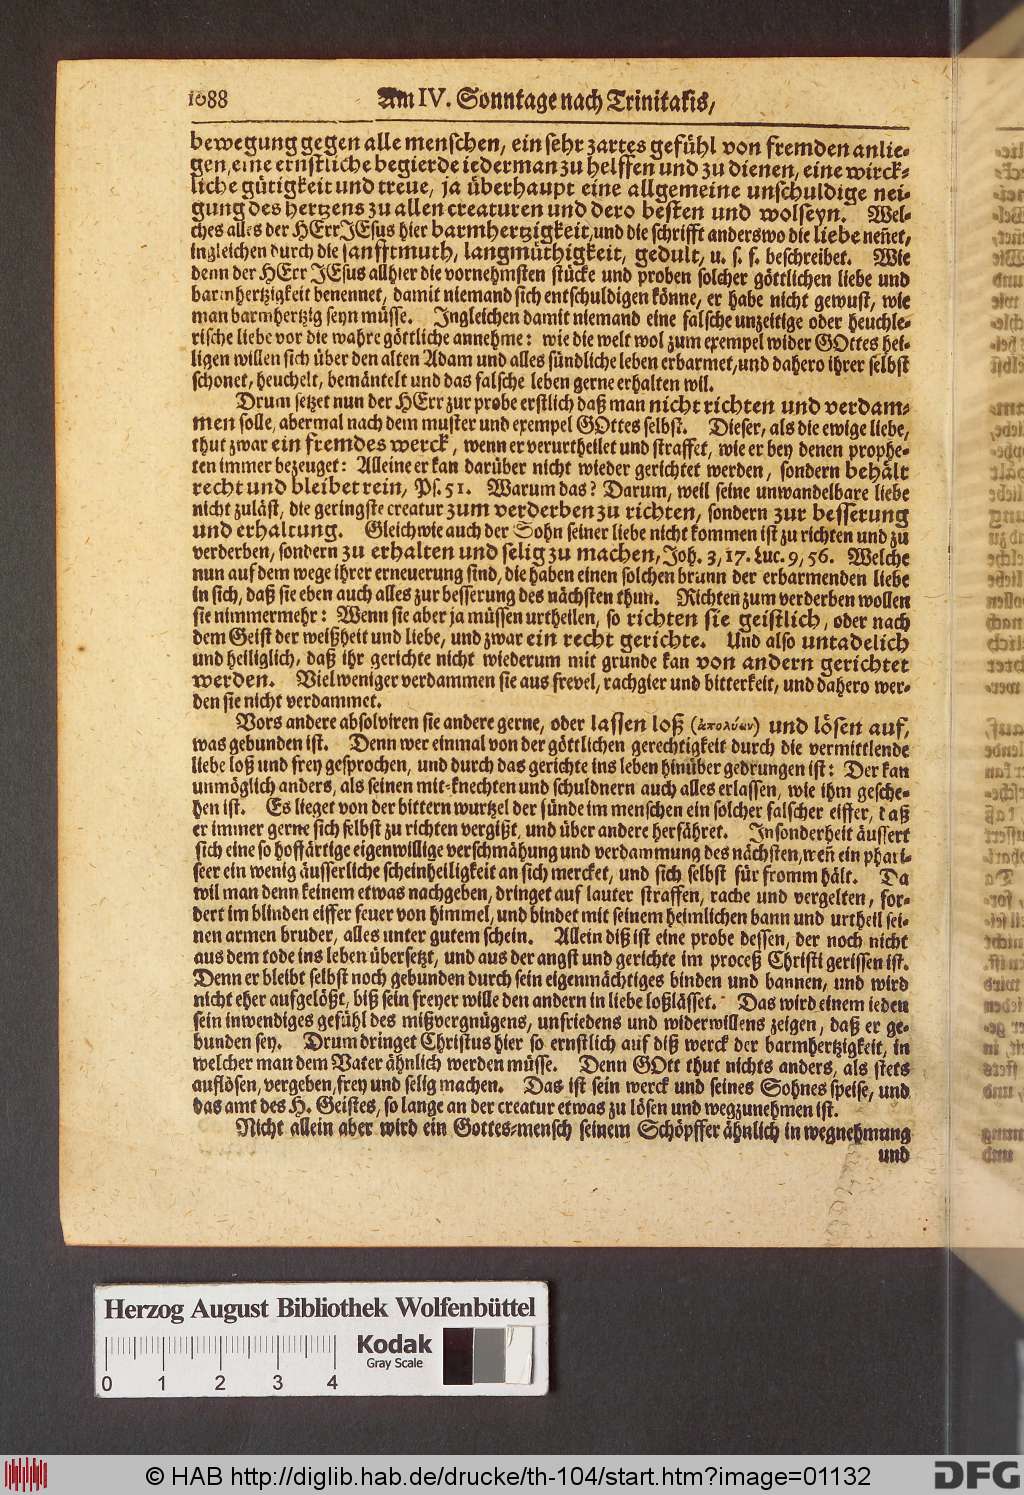 1088 Am IV. Sonntage nach Trinitatis,
bewegung gegen alle menschen, ein sehr zartes gefühl von fremden anlie-
gen, eine ernstliche begierde iederman zu helffen und zu dienen, eine wirck-
liche gütigkeit und treue, ja überhaupt eine allgemeine unschuldige nei-
gung des hertzens zu allen creaturen und dero besten und wolseyn. Wel-
ches alles der HErr JEsus hier barmhertzigkeit, und die schrifft anderswo die liebe neñet,
ingleichen durch die sanfftmuth, langmüthigkeit, gedult, u. s. f. beschreibet. Wie
denn der HErr JEsus allhier die vornehmsten stücke und proben solcher göttlichen liebe und
barmhertzigkeit benennet, damit niemand sich entschuldigen könne, er habe nicht gewust, wie
man barmhertzig seyn müsse. Ingleichen damit niemand eine falsche unzeitige oder heuchle-
rische liebe vor die wahre göttliche annehme: wie die welt wol zum exempel wider GOttes hei-
ligen willen sich über den alten Adam und alles sündliche leben erbarmet, und dahero ihrer selbst
schonet, heuchelt, bemäntelt und das falsche leben gerne erhalten wil.
Drum setzet nun der HErr zur probe erstlich daß man nicht richten und verdam-
men solle, abermal nach dem muster und exempel GOttes selbst. Dieser, als die ewige liebe,
thut zwar ein fremdes werck, wenn er verurtheilet und straffet, wie er bey denen prophe-
ten immer bezeuget: Alleine er kan darüber nicht wieder gerichtet werden, sondern behält
recht und bleibet rein, Ps. 51. Warum das? Darum, weil seine unwandelbare liebe
nicht zuläst, die geringste creatur zum verderben zu richten, sondern zur besserung
und erhaltung. Gleichwie auch der Sohn seiner liebe nicht kommen ist zu richten und zu
verderben, sondern zu erhalten und selig zu machen, Joh. 3, 17. Luc. 9, 56. Welche
nun auf dem wege ihrer erneuerung sind, die haben einen solchen brunn der erbarmenden liebe
in sich, daß sie eben auch alles zur besserung des nächsten thun. Richten zum verderben wollen
sie nimmermehr: Wenn sie aber ja müssen urtheilen, so richten sie geistlich, oder nach
dem Geist der weißheit und liebe, und zwar ein recht gerichte. Und also untadelich
und heiliglich, daß ihr gerichte nicht wiederum mit grunde kan von andern gerichtet
werden. Vielweniger verdammen sie aus frevel, rachgier und bitterkeit, und dahero wer-
den sie nicht verdammet.
Vors andere absolviren sie andere gerne, oder lassen loß (ἀπολύειν) und lösen auf,
was gebunden ist. Denn wer einmal von der göttlichen gerechtigkeit durch die vermittlende
liebe loß und frey gesprochen, und durch das gerichte ins leben hinüber gedrungen ist: Der kan
unmöglich anders, als seinen mit-knechten und schuldnern auch alles erlassen, wie ihm gesche-
hen ist. Es lieget von der bittern wurtzel der sünde im menschen ein solcher falscher eiffer, daß
er immer gerne sich selbst zu richten vergißt, und über andere herfähret. Insonderheit äussert
sich eine so hoffärtige eigenwillige verschmähung und verdammung des nächsten, weñ ein phari-
seer ein wenig äusserliche scheinheiligkeit an sich mercket, und sich selbst für fromm hält. Da
wil man denn keinem etwas nachgeben, dringet auf lauter straffen, rache und vergelten, for-
dert im blinden eiffer feuer von himmel, und bindet mit seinem heimlichen bann und urtheil sei-
nen armen bruder, alles unter gutem schein. Allein diß ist eine probe dessen, der noch nicht
aus dem tode ins leben übersetzt, und aus der angst und gerichte im proceß Christi gerissen ist.
Denn er bleibt selbst noch gebunden durch sein eigenmächtiges binden und bannen, und wird
nicht eher aufgelößt, biß sein freyer wille den andern in liebe loßlässet. Das wird einem ieden
sein inwendiges gefühl des mißvergnügens, unfriedens und widerwillens zeigen, daß er ge-
bunden sey. Drum dringet Christus hier so ernstlich auf diß werck der barmhertzigkeit, in
welcher man dem Vater ähnlich werden müsse. Denn GOtt thut nichts anders, als stets
auflösen, vergeben, frey und selig machen. Das ist sein werck und seines Sohnes speise, und
das amt des H. Geistes, so lange an der creatur etwas zu lösen und wegzunehmen ist.
Nicht allein aber wird ein Gottes-mensch seinem Schöpffer ähnlich in wegnehmung
und
Herzog August Bibliothek Wolfenbüttel
Kodak
Gray Scale
0 1 2 3 4
© HAB http://diglib.hab.de/drucke/th-104/start.htm?image=01132
DFG